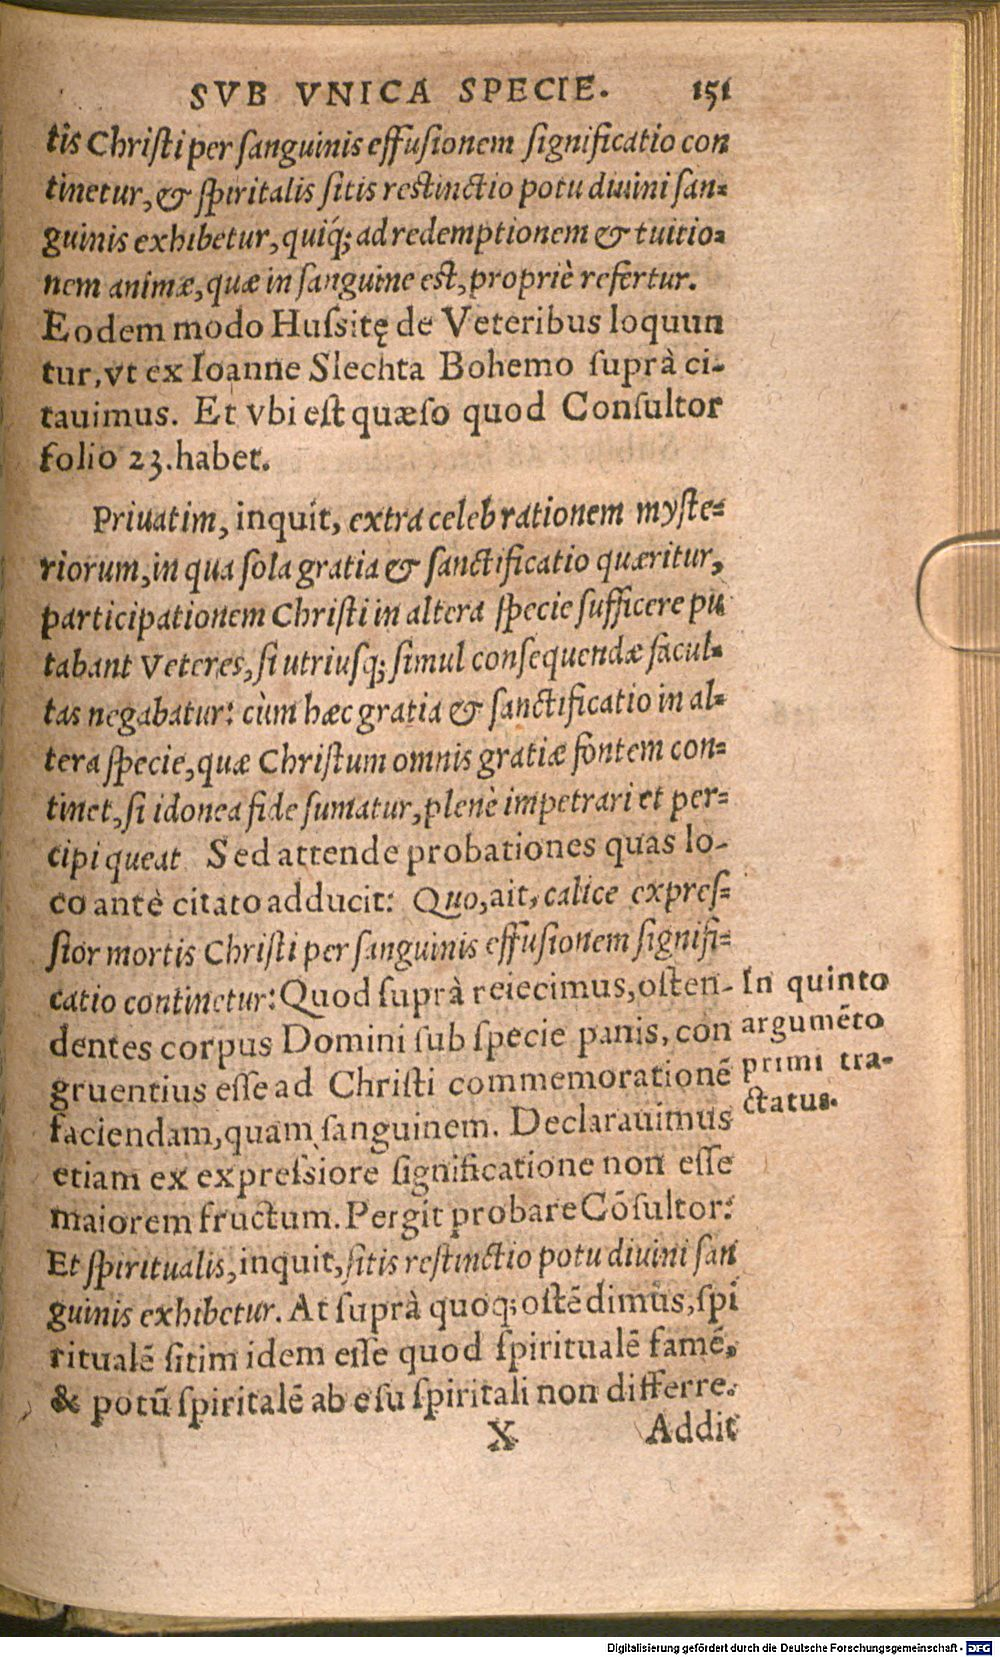 SVB VNICA SPECIE. 151
tis Christi per sanguinis effusionem significatio con
tinetur, & spiritalis sitis restinctio potu diuini san-
guinis exhibetur, quiq́; ad redemptionem & tuitio-
nem animæ, quæ in sanguine est, propriè refertur.
Eodem modo Hussitę de Veteribus loquun
tur, vt ex Ioanne Slechta Bohemo suprà ci-
tauimus. Et vbi est quæso quod Consultor
folio 23. habet.
Priuatim, inquit, extra celebrationem myste-
riorum, in qua sola gratia & sanctificatio quæritur,
participationem Christi in altera specie sufficere pu
tabant Veteres, si utriusq; simul consequendæ facul-
tas negabatur: cùm hæc gratia & sanctificatio in al-
tera specie, quæ Christum omnis gratiæ fontem con-
tinet, si idonea fide sumatur, plenè impetrari et per-
cipi queat Sed attende probationes quas lo-
co antè citato adducit: Quo, ait, calice expres-
sior mortis Christi per sanguinis effusionem signifi-
catio continetur: Quod suprà reiecimus, osten-
dentes corpus Domini sub specie panis, con
gruentius esse ad Christi commemorationē
faciendam, quam sanguinem. Declarauimus
etiam ex expressiore significatione non esse
maiorem fructum. Pergit probare Cōsultor:
Et spiritualis, inquit, sitis restinctio potu diuini san
guinis exhibetur. At suprà quoq; ostēdimus, spi
ritualē sitim idem esse quod spiritualē famē,
& potū spiritalē ab esu spiritali non differre.
X Addit
In quinto
argumēto
primi tra-
ctatus.
Digitalisierung gefördert durch die Deutsche Forschungsgemeinschaft - DFG